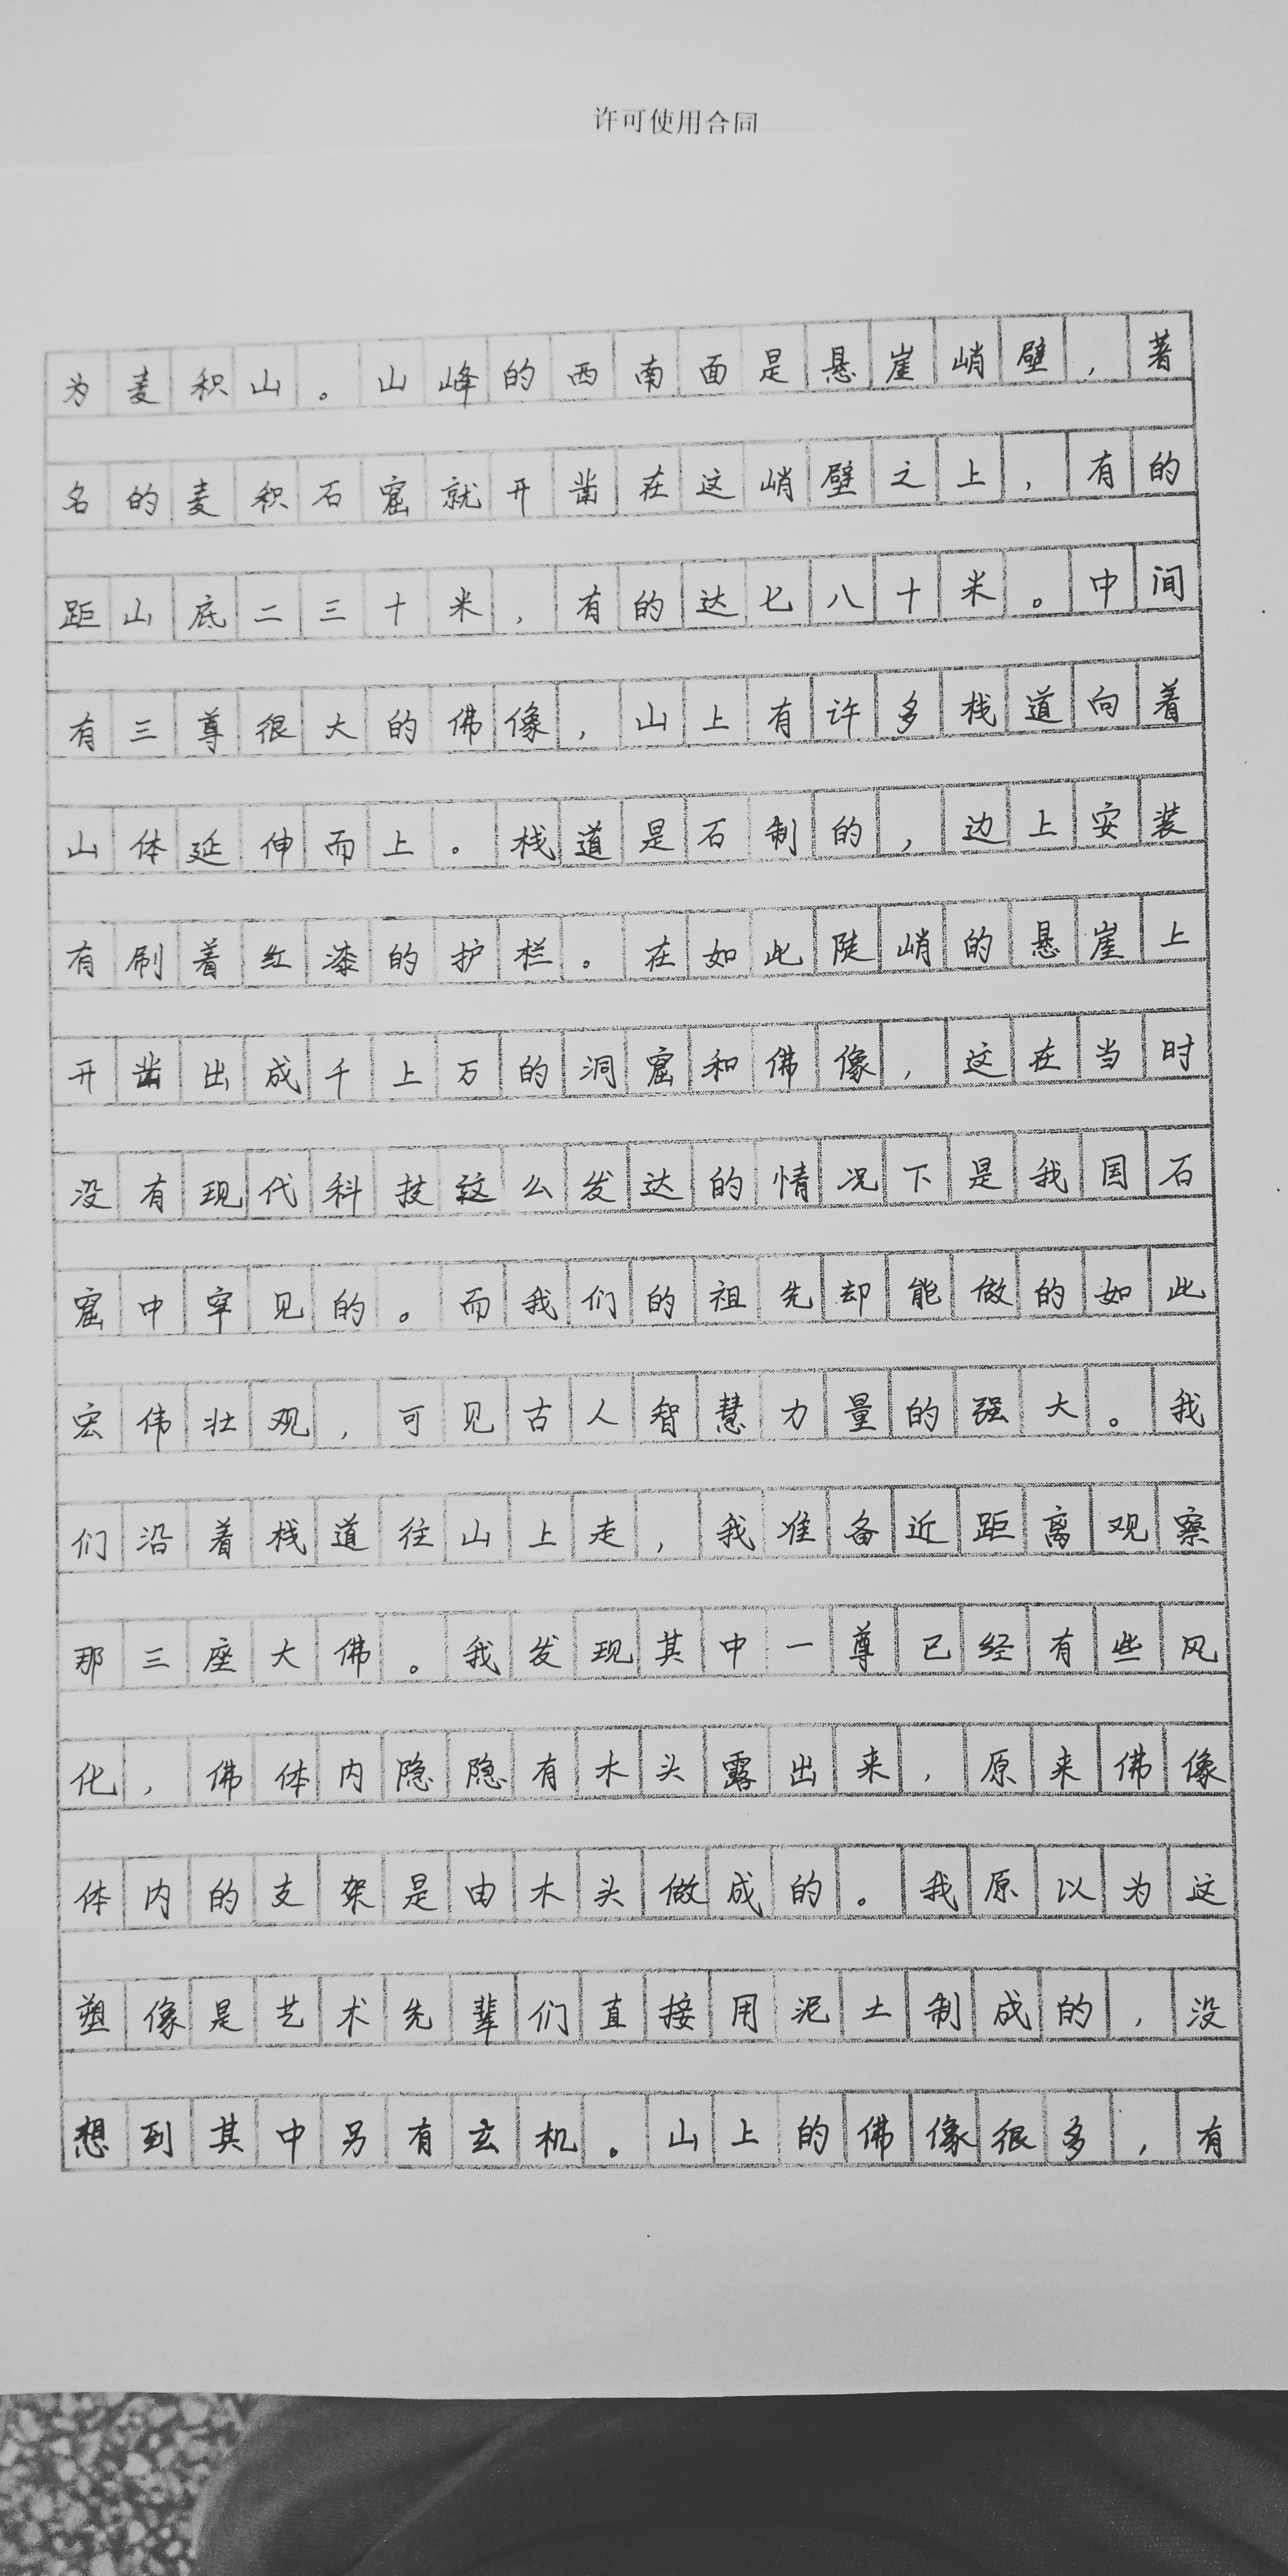 许可使用合同
为麦积山。山峰的西南面是悬崖峭壁，著
名的麦积石窟就开凿在这峭壁之上，有的
距山底二三十米，有的达七八十米。中间
有三尊很大的佛像，山上有许多栈道向着
山体延伸而上。栈道是石制的，边上安装
有刷着红漆的护栏。在如此陡峭的悬崖上
开凿出成千上万的洞窟和佛像，这在当时
没有现代科技这么发达的情况下是我国石
窟中罕见的。而我们的祖先却能做的如此
宏伟壮观，可见古人智慧力量的强大。我
们沿着栈道往山上走，我准备近距离观察
那三座大佛。我发现其中一尊已经有些风
化，佛体内隐隐有木头露出来，原来佛像
体内的支架是由木头做成的。我原以为这
塑像是艺术先辈们直接用泥土制成的，没
想到其中另有玄机。山上的佛像很多，有